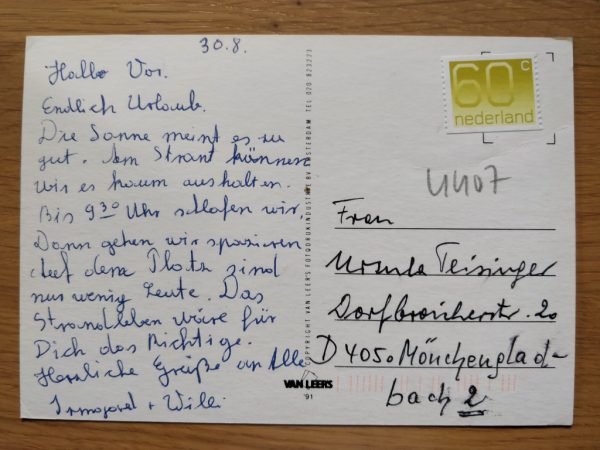 30.8.
Hallo Vor.
Endlich Urlaub.
Die Sonne meint es zu
gut. Am Strant können
wir es kaum aushalten.
Bis 9³⁰ Uhr schlafen wir.
Dann gehen wir spazieren
Auf dem Platz sind
nur wenig Leute. Das
Strandleben wäre für
Dich das Richtige.
Herzliche Grüße an Alle
Irmgard + Willi
COPYRIGHT VAN LEER'S FOTODRUKINDUSTRIE BV AMSTERDAM TEL 020 823271
VAN LEER'S
'91
60 c
nederland
4407
Frau
Ursula Teisinger
Dorfbroicherstr. 20
D 4050 Mönchenglad-
bach 2